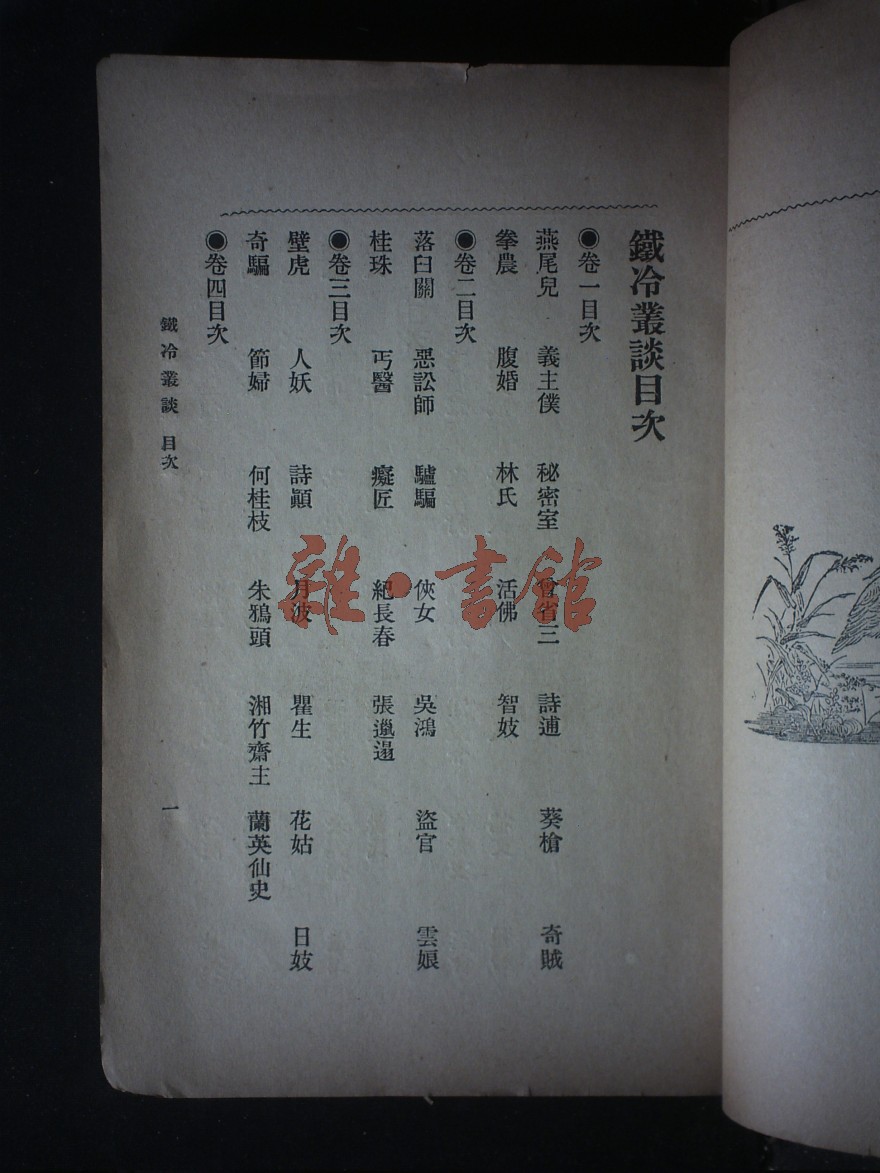 鐵冷叢談目次
◉卷一目次
燕尾兒 義主僕 秘密室 曾省三 詩逋 葵槍 奇賊
拳農 腹婚 林氏 活佛 智妓
◉卷二目次
落臼關 惡訟師 驢騙 俠女 吳鴻 盜官 雲娘
桂珠 丐醫 癡匠 紀長春 張邋遢
◉卷三目次
壁虎 人妖 詩顚 月波 瞿生 花姑 日妓
奇騙 節婦 何桂枝 朱鴉頭 湘竹齋主 蘭英仙史
◉卷四目次
鐵冷叢談 目次
一
雜·書館